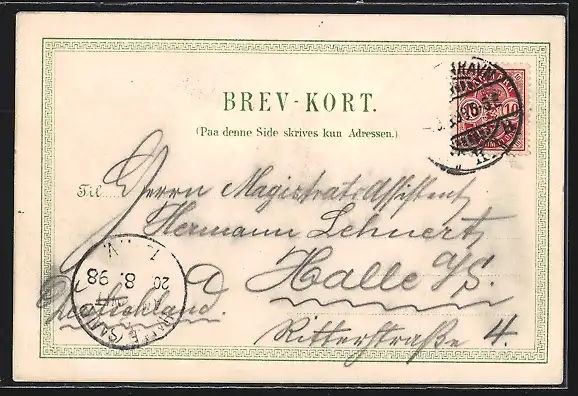 BREV-KORT.
(Paa denne Side skrives kun Adressen.)
Til Herrn Magistrats Assistent
Hermann Lehnert
Halle a/S.
Deutschland.
Ritterstraße 4.
10
8. 98
20